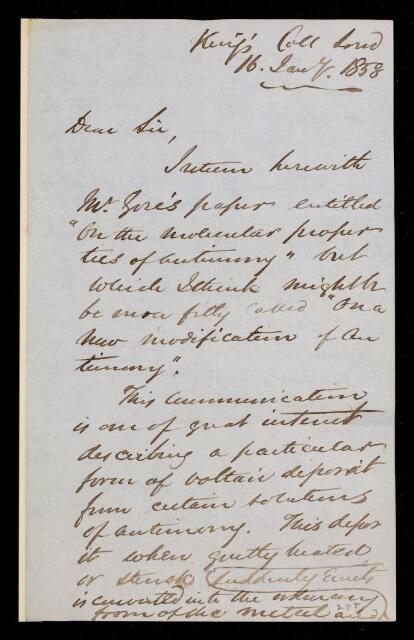 King's Coll Lond
16. Jany. 1858
Dear Sir,
I return herewith
Mr. Gore's paper entitled
"On the molecular proper
ties of antimony" but
which I think might
be more fitly called "On a
new modification of An
timony".
This communication
is one of great interest
describing a particular
form of voltaic deposit
from certain solutions
of antimony. This depos
it when gently heated
or struck (suddenly emits
is converted into the ordinary
form of the metal and)
275